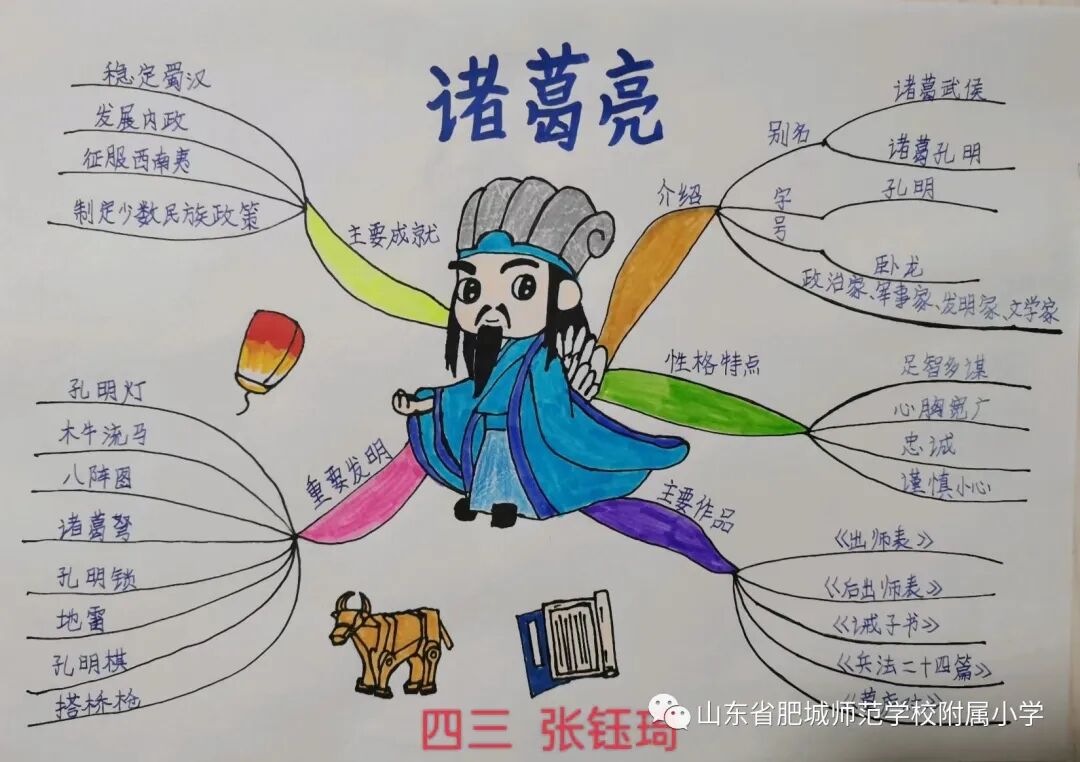 诸葛亮
主要成就
稳定蜀汉
发展内政
征服西南夷
制定少数民族政策
介绍
别名
诸葛武侯
诸葛孔明
字
孔明
号
卧龙
政治家、军事家、发明家、文学家
性格特点
足智多谋
心胸宽广
忠诚
谨慎小心
重要发明
孔明灯
木牛流马
八阵图
诸葛弩
孔明锁
地雷
孔明棋
搭桥枪
主要作品
《出师表》
《后出师表》
《诫子书》
《兵法二十四篇》
四三 张钰琦
山东省肥城师范学校附属小学